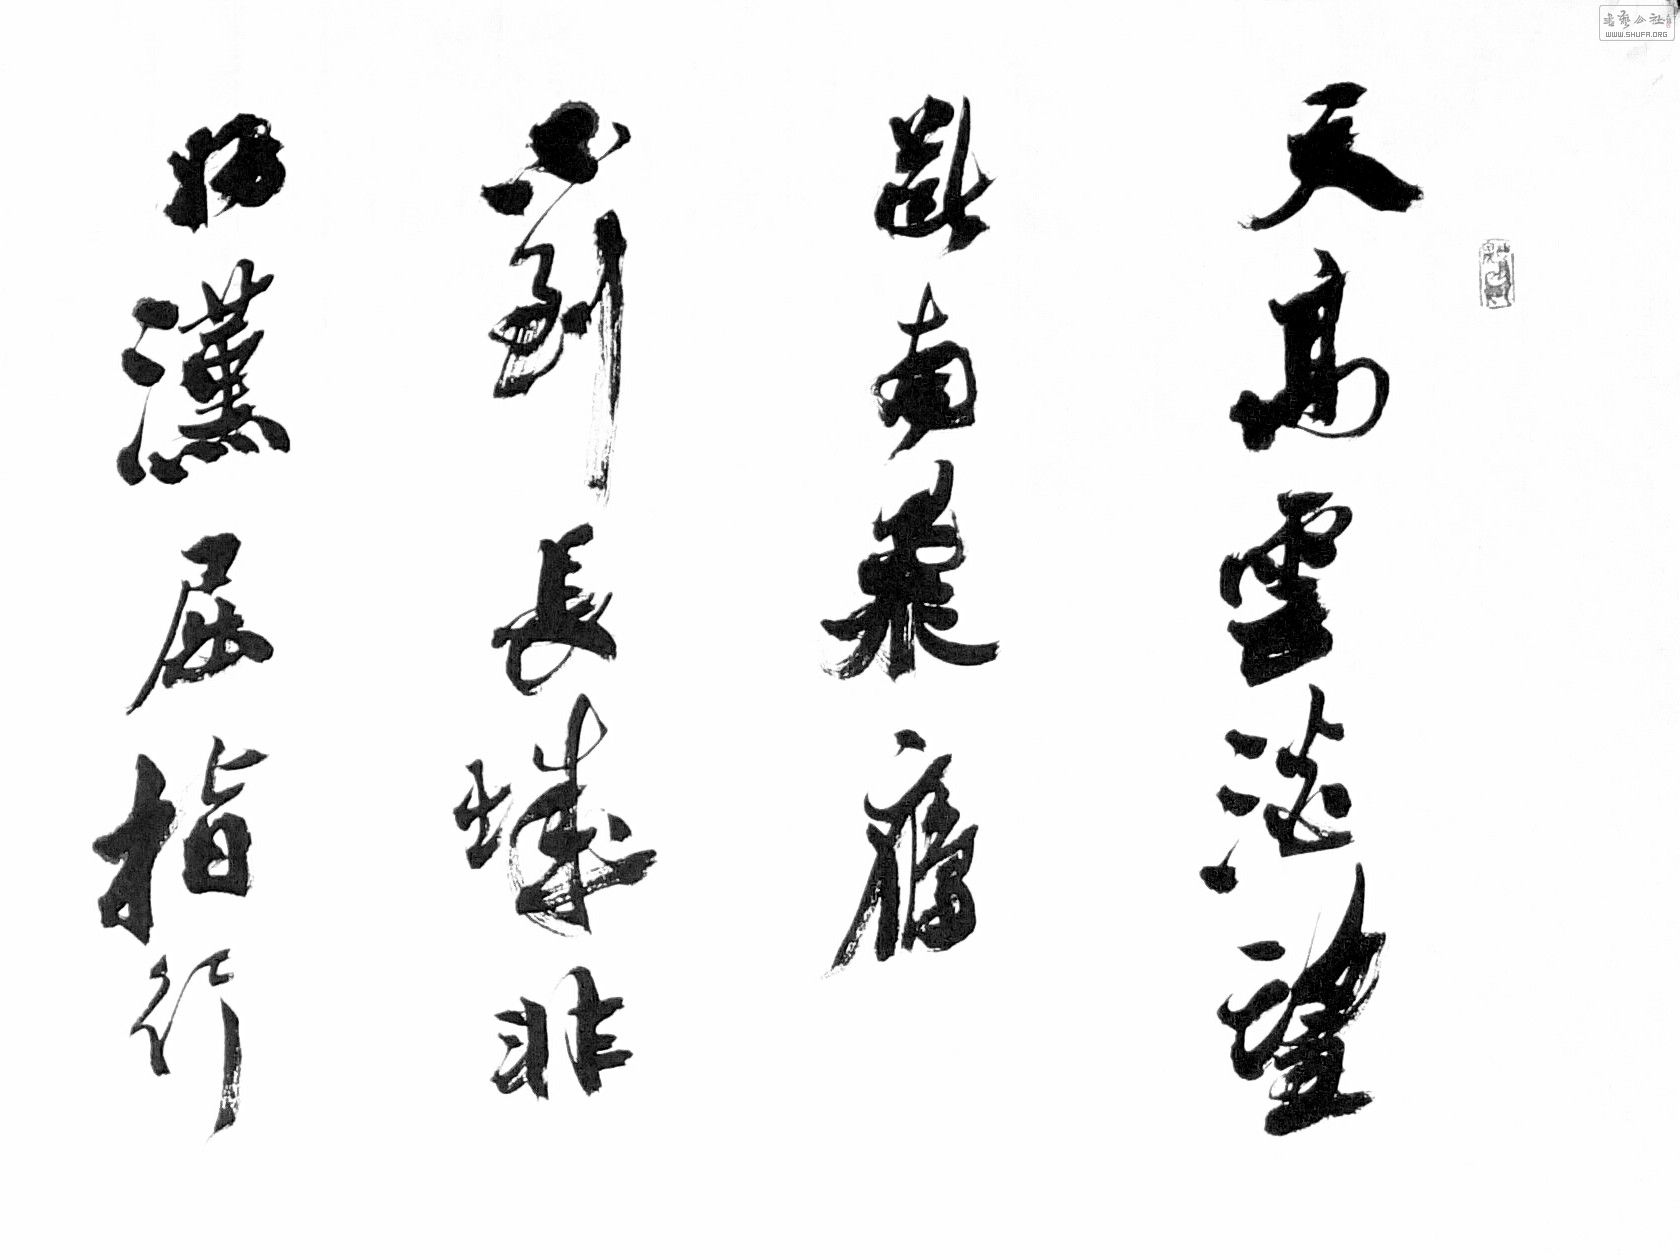 天高雲淡望
斷南飛雁
不到長城非
好漢屈指行
书艺公社
WWW.SHUFA.ORG